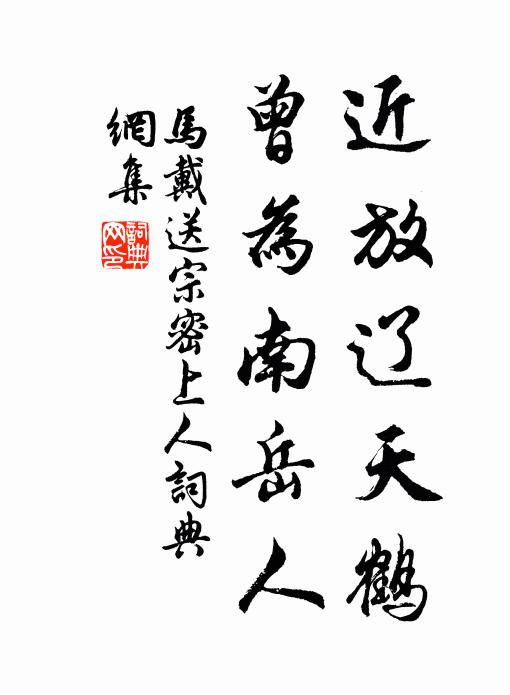 近放辽天鹤
曾為南岳人
馬戴送宗密上人詞典
網集
詞典网印